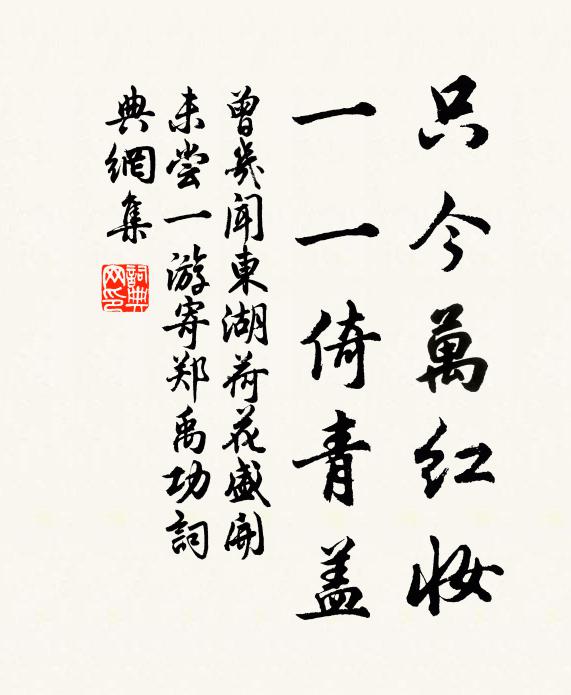 只今萬红妆
一一倚青蓋
曾幾聞東湖荷花盛開
未尝一游寄郑禹功詞
典網集
詞典网印